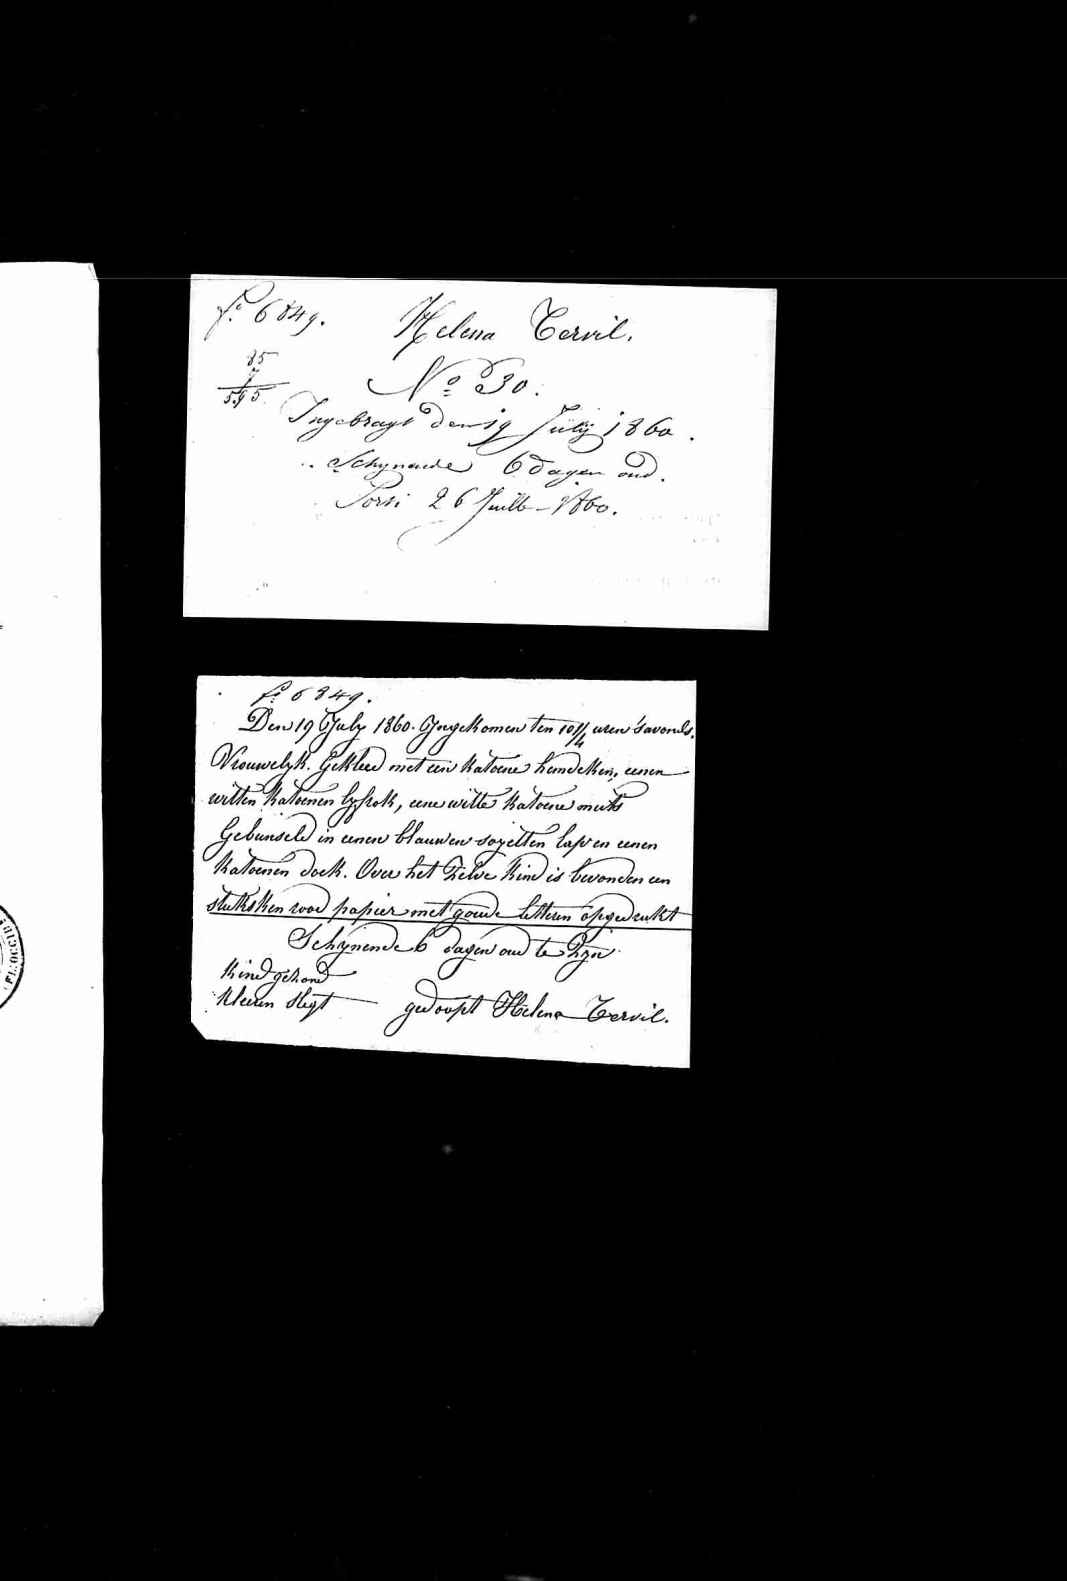 fo. 6849.
Helena Tervil.
85
7
595
No 30.
Ingebragt den 19 July 1860.
Schynende 6 dagen oud.
Sorti 26 Juill - 1860.
fo. 6849.
Den 19 July 1860. Ingekomen ten 10 1/4 uren 's avonds.
Vrouwelyk. Gekleed met een katoene hemdeken, eenen
witten katoenen lyfrok, eene witte katoene muts
Gebunseld in eenen blauwen sayetten lap en eenen
katoenen doek. Over het zelve kind is bevonden een
stuksken rood papier met goude letteren opgedrukt
Schynende 6 dagen oud te zyn
Kind gezond
kleeren slegt
gedoopt Helena Tervil.